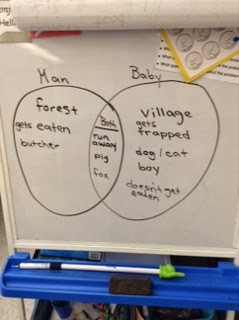 Man
Baby
forest
gets eaten
butcher
Both
run
away
pig
fox
village
gets
trapped
dog/cat
boy
doesn't get
eaten